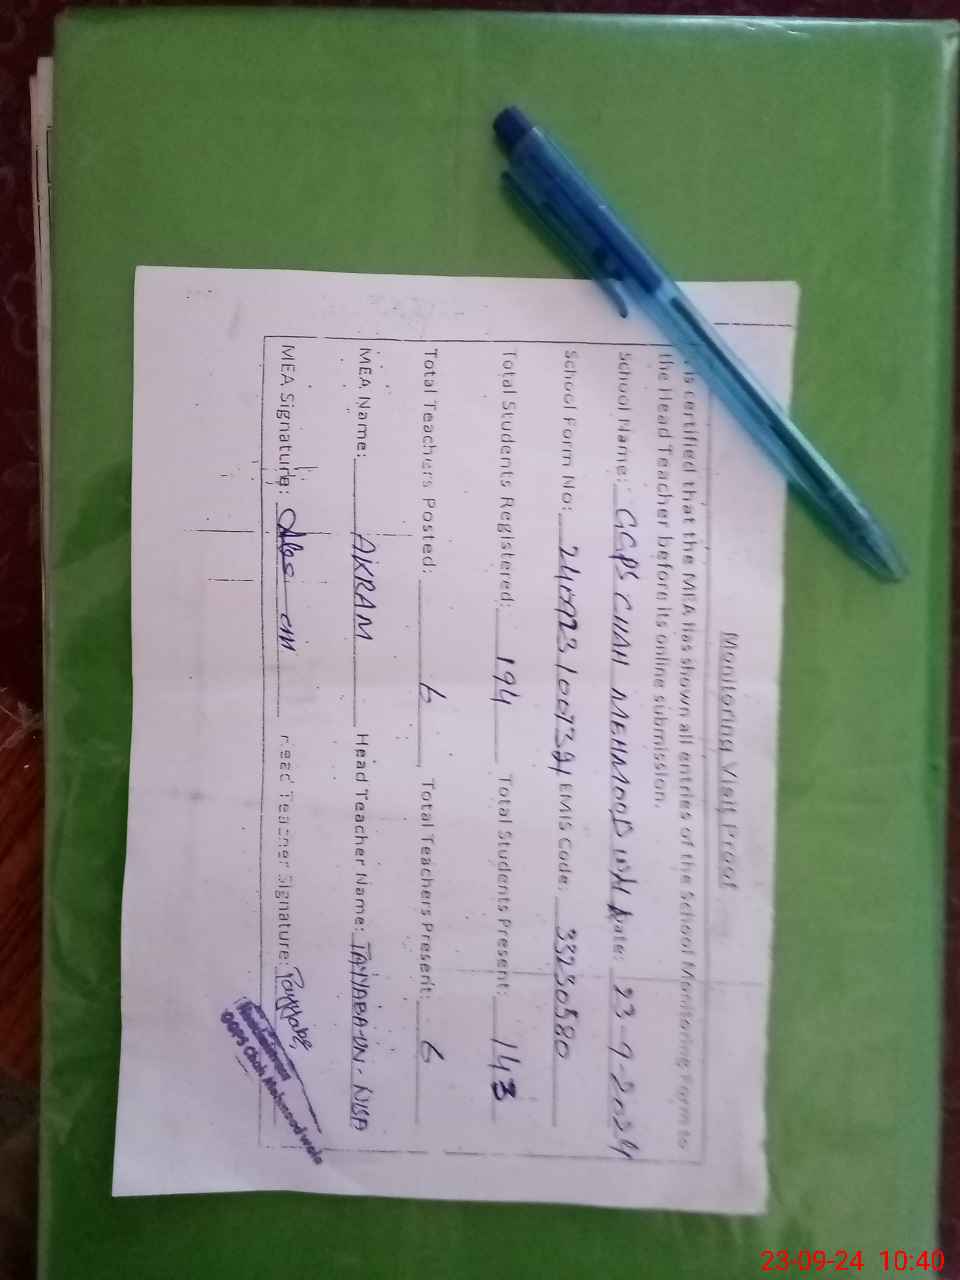 Monitoring Visit Proof
is certified that the MEA has shown all entries of the School Monitoring Form to
the Head Teacher before its online submission.
School Name: GGPS CHAH MEHMOOD WALA Date: 23-9-2024
School Form No: EMIS Code: 33230580
Total Students Registered: 194 Total Students Present: 143
Total Teachers Posted: 6 Total Teachers Present: 6
MEA Name: AKRAM Head Teacher Name: TAYYABA-UN-NISA
MEA Signature: Head Teacher Signature: Tayyaba
Headmistress
GGPS Chah Mehmood wala
23-09-24 10:40